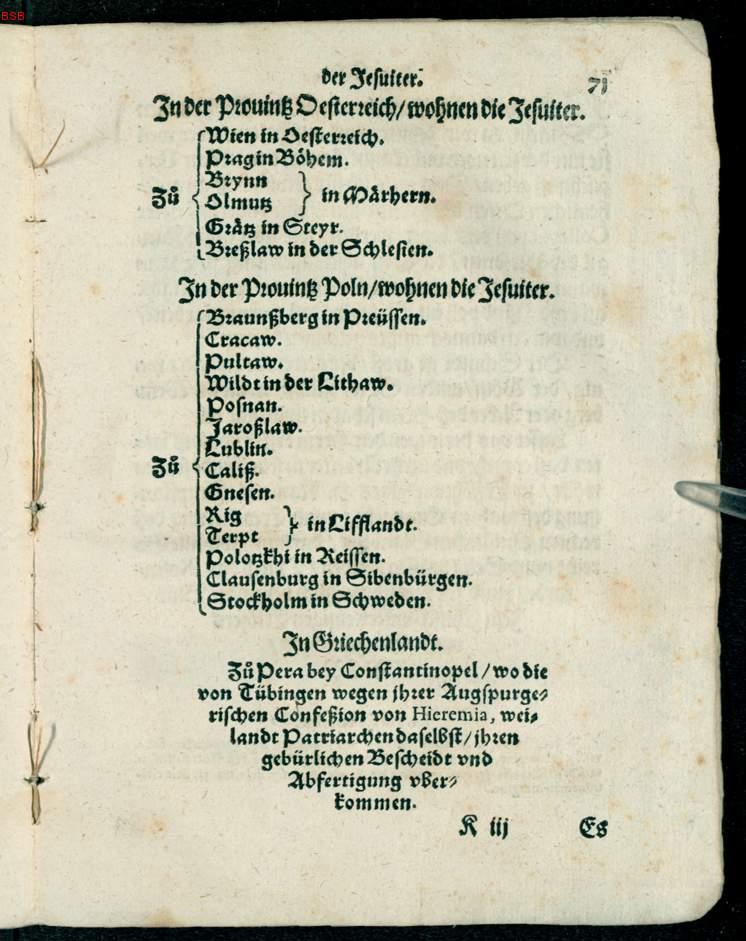 BSB
der Jesuiter.
71
In der Prouintz Oesterreich/wohnen die Jesuiter.
Wien in Oesterreich.
Prag in Böhem.
Brynn
Zů
in Märhern.
Olmutz
Grätz in Steyr.
Breßlaw in der Schlesien.
In der Prouintz Poln/wohnen die Jesuiter.
Braunßberg in Preüssen.
Cracaw.
Pultaw.
Wildt in der Lithaw.
Posnan.
Jaroßlaw.
Lublin.
Zů
Caliß.
Gnesen.
Rig
in Lifflandt.
Terpt
Polotzkhi in Reissen.
Clausenburg in Sibenbürgen.
Stockholm in Schweden.
In Griechenlandt.
Zů Pera bey Constantinopel/wo die
von Tübingen wegen jhrer Augspurge⸗
rischen Confeßion von Hieremia, wei⸗
landt Patriarchen daselbst/jhren
gebürlichen Bescheidt vnd
Abfertigung vber⸗
kommen.
K iij
Es